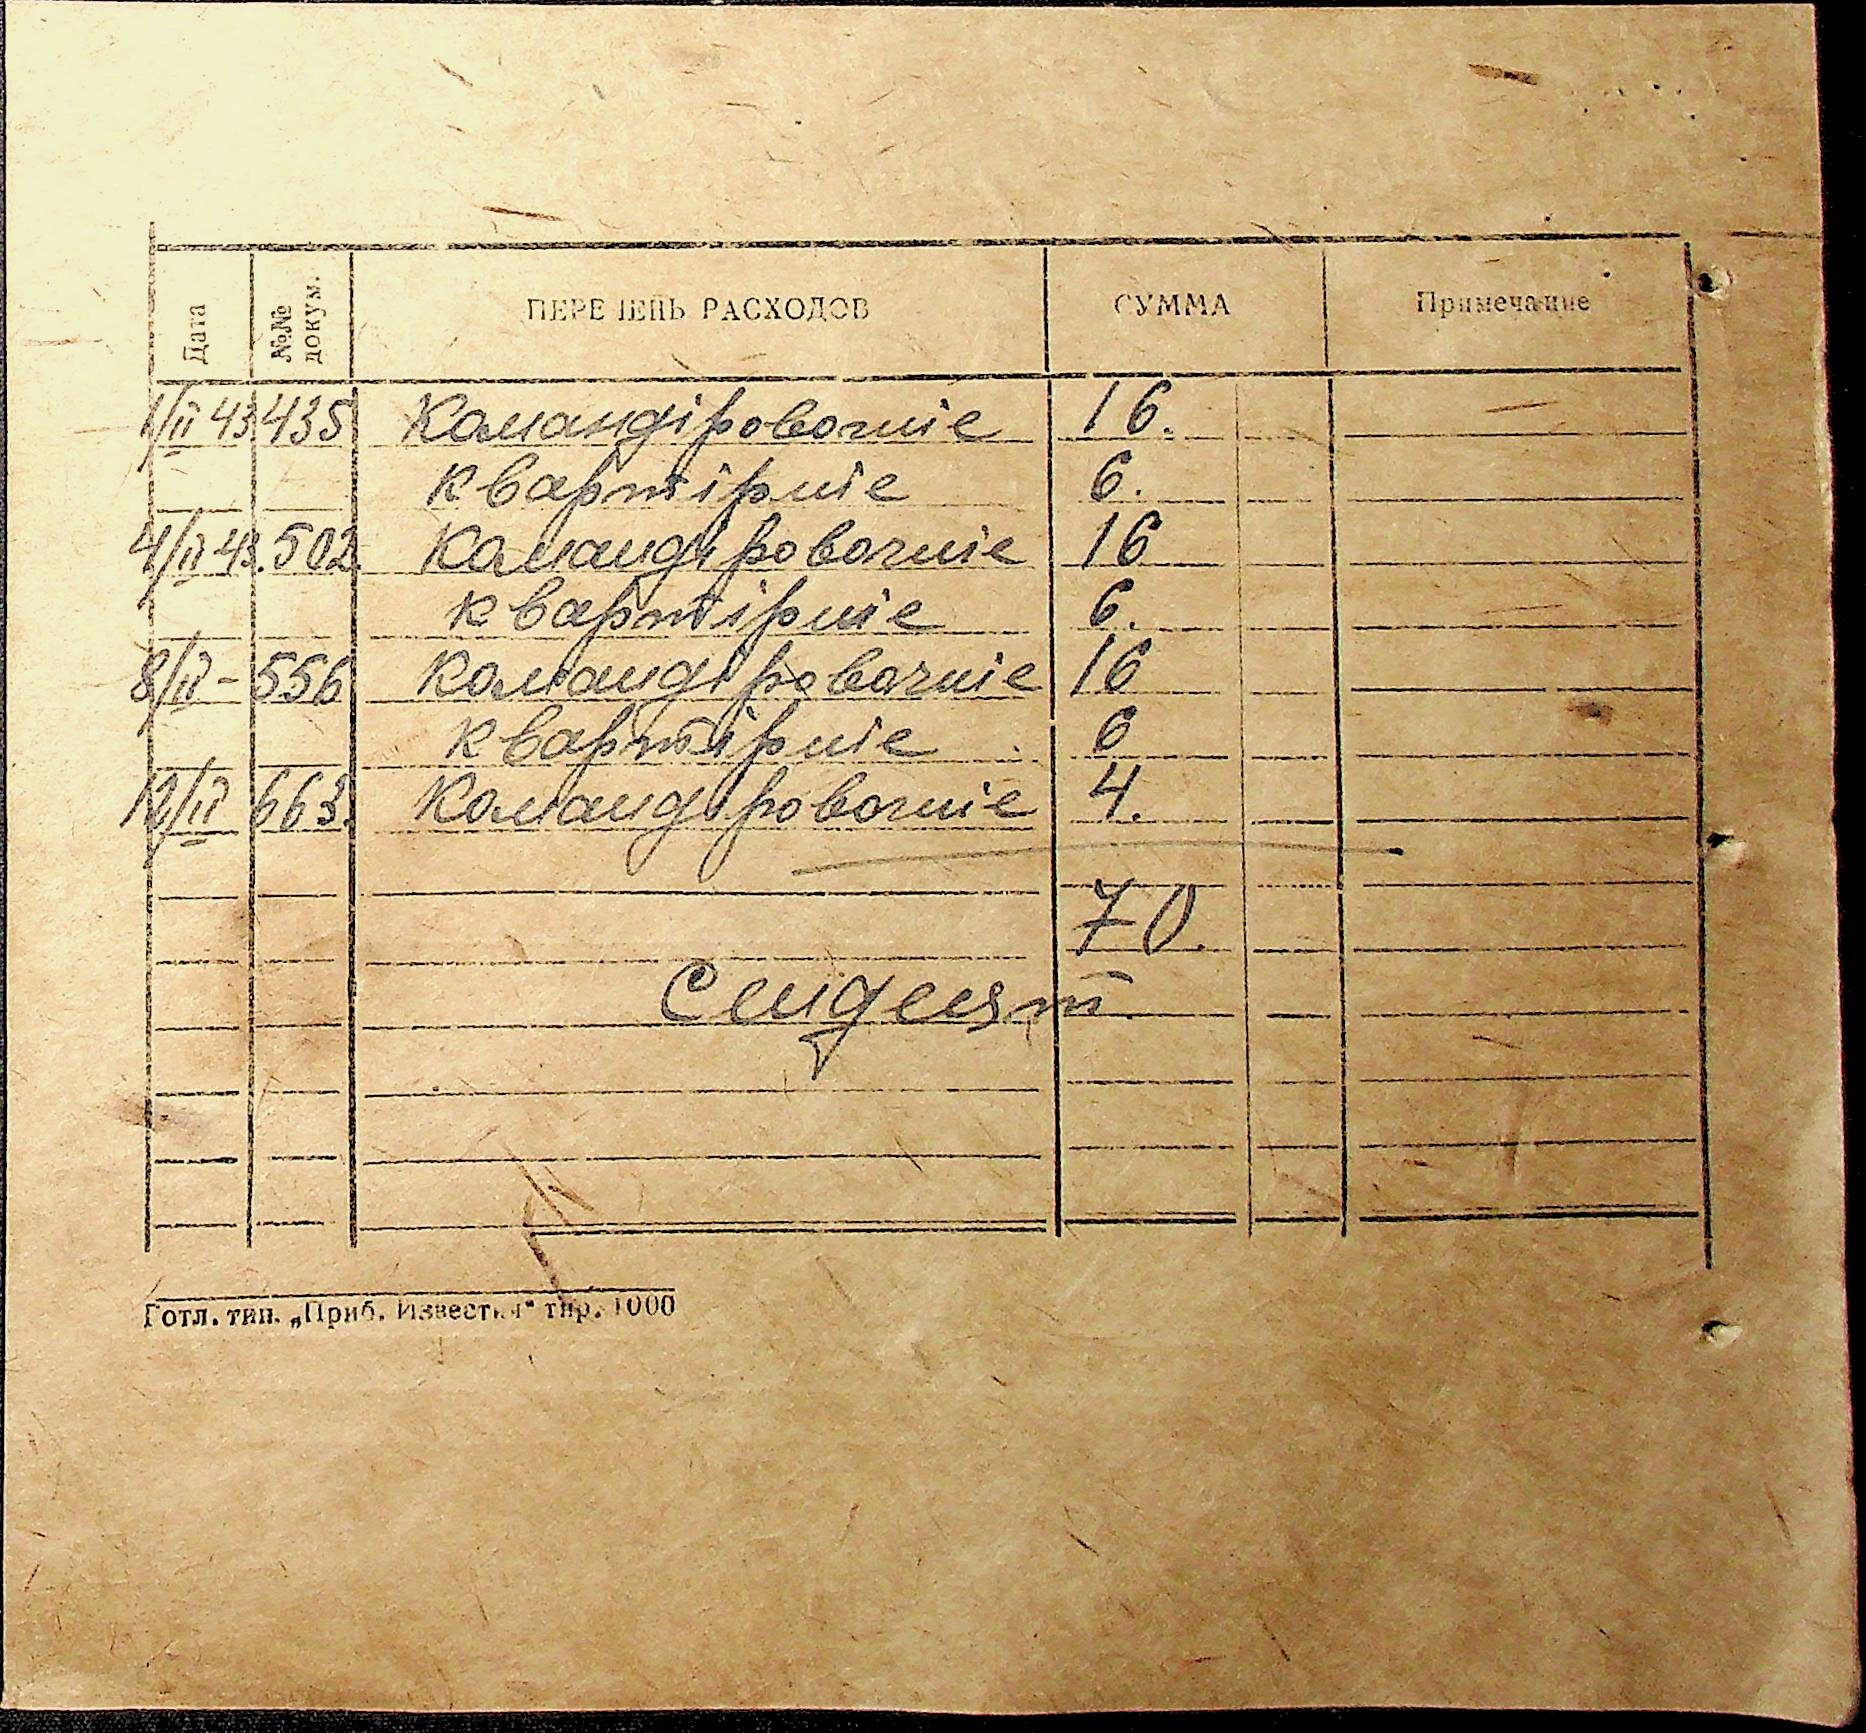 Дата №№ докум. ПЕРЕЧЕНЬ РАСХОДОВ СУММА Примечание
1/II 43 435 Командіровочніе 16.
квартірніе 6.
4/II 43. 502 Командіровочніе 16
квартірніе 6.
8/II - 556 Командіровочніе 16
квартірніе 6
12/II 663. Командіровочніе 4.
70.
Семдесят
Готл. тип. „Приб. Известия“ тир. 1000